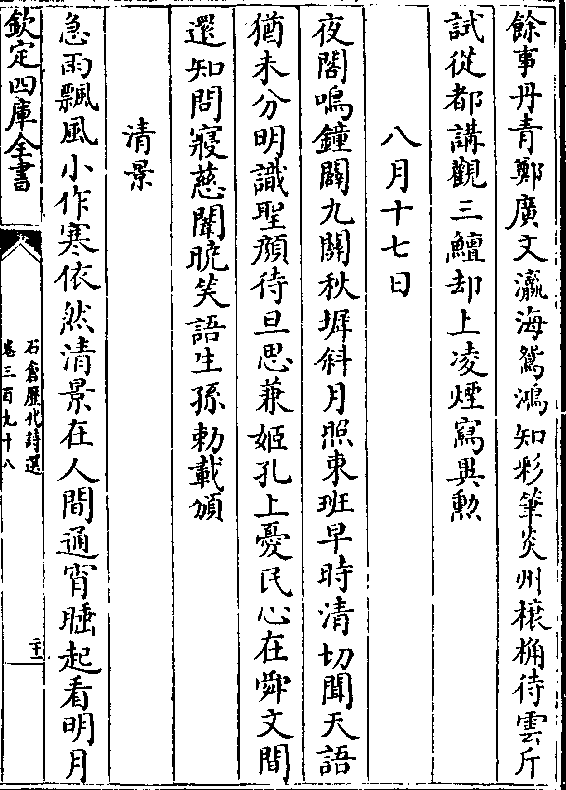 餘事丹青鄭廣文瀛海鵷鴻知彩筆炎州榱桷待雲斤
試從都講觀三鱣却上凌煙寫異勲
八月十七日
夜閤鳴鐘闢九關秋墀斜月照東班早時清切聞天語
猶未分明識聖顔待旦思兼姬孔上憂民心在舜文間
還知問寢慈闈曉笑語生孫勅載頒
清景
急雨飄風小作寒依然清景在人間通宵睡起看明月
欽定四庫全書
石倉歷代詩選
卷三百九十八
二十一